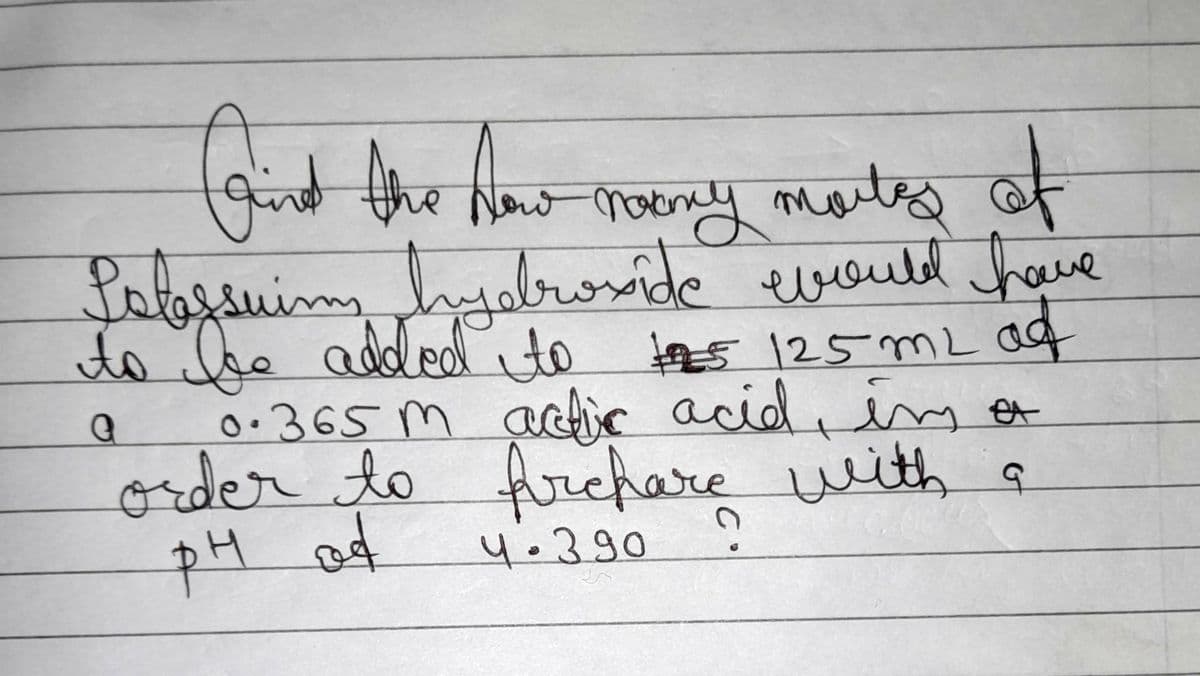 Find the how many moles of
Potassuim hydroxide would have
to be added to 125 125 mL of
a 0.365 M actic acid, in a
order to prepare with a
pH of 4.390 ?